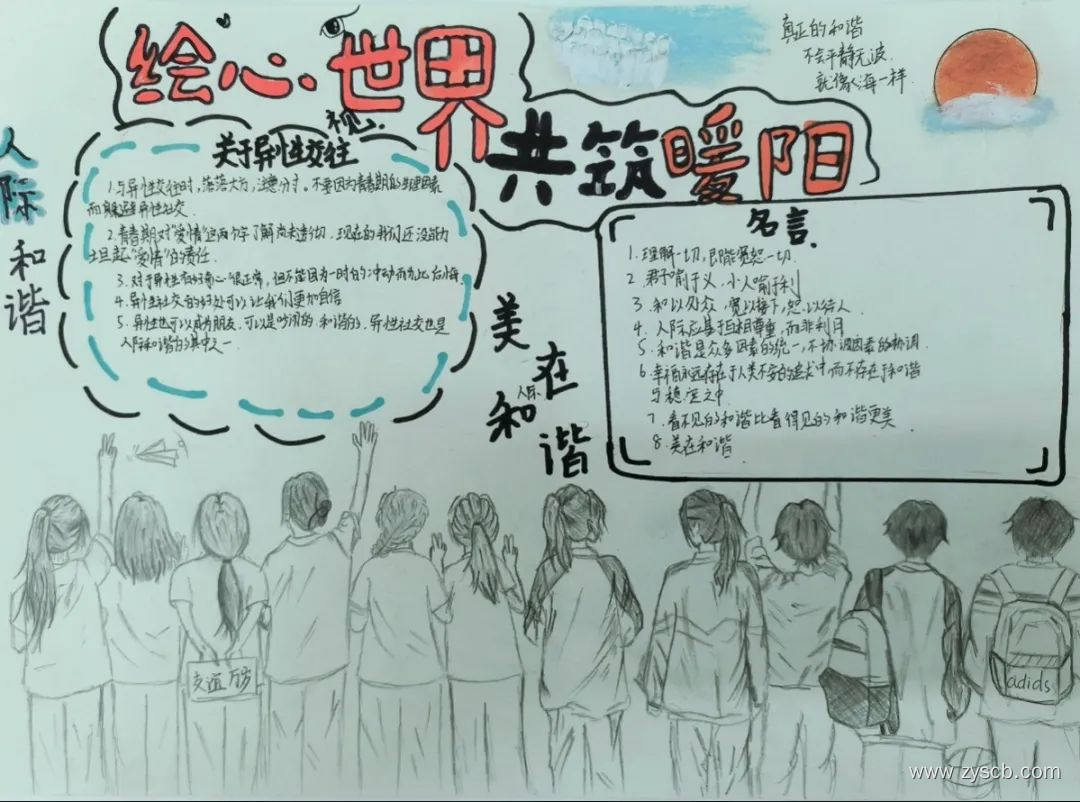 绘心·世界
共筑暖阳
真正的和谐
不会平静无波
就像海一样
人际和谐
关于异性交往
视心.
1.与异性交往时,落落大方,注意分寸。不要因为青春期的生理因素
而躲避异性社交.
2.青春期对"爱情"这两个字了解尚未透切.现在的我们还没能力
担起"爱情"的责任.
3.对于异性有好奇心很正常,但不能因为一时的冲动而为此后悔.
4.异性社交的好处可以让我们更加自信
5.异性也可以成为朋友,可以是吵闹的.和谐的,异性社交也是
人际和谐的其中之一.
美在
人际
和谐
名言.
1.理解一切,即除宽恕一切.
2.君子喻于义,小人喻于利
3.和以处众,宽以接下,恕以待人
4.人际应基于互相尊重,而非利用
5.和谐是众多因素的统一,不协调因素的协调.
6.幸福永远存在于人类不安的追求中而不存在于和谐
与稳定之中.
7.看不见的和谐比看得见的和谐更美
8.美在和谐
友谊万方
adids
www.zyscb.com